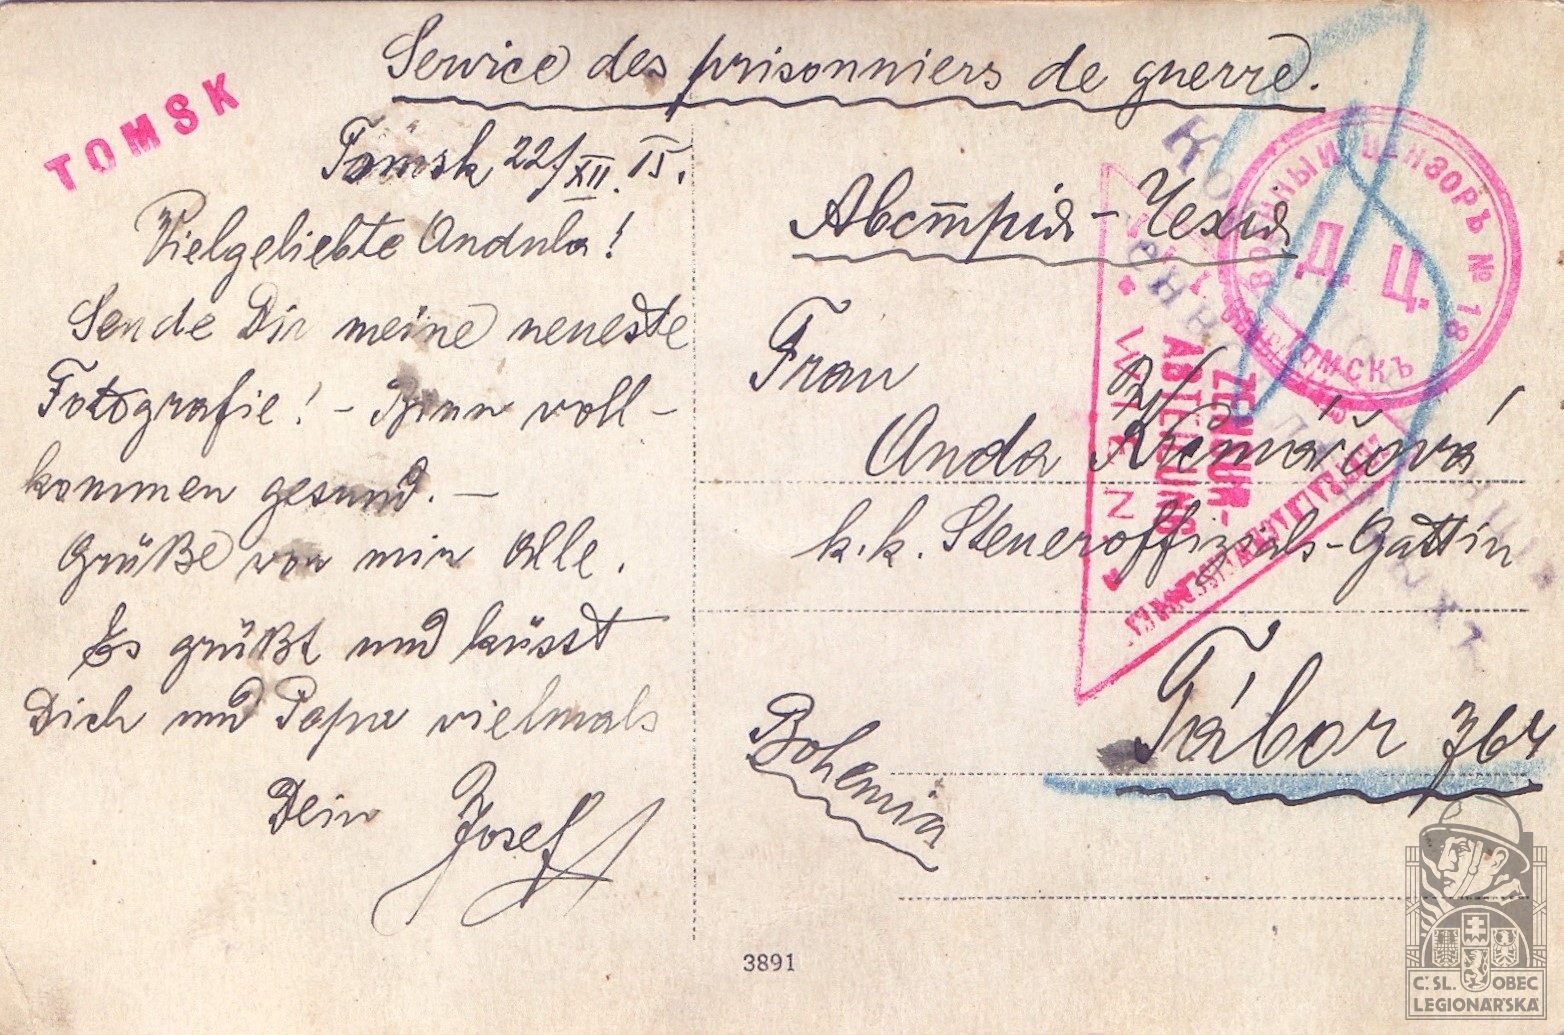 Service des prisonniers de guerre.
TOMSK
Tomsk 22/XII. 15.
Vielgeliebte Andula!
Sende Dir meine neueste
Fotografie! - Binn voll-
kommen gesund. -
Grüße von mir Alle.
Es grüßt und küsst
Dich und Papa vielmals
Dein Josef
Австрія - Чехія
Frau
Anda Krčmářová
k.k. Steueroffizials-Gattin
Tábor 764
Bohemia
ВОЕННЫЙ ЦЕНЗОРЪ № 18
Д. Ц.
ТОМСКЪ
ZENSUR-
ABTEILUNG
WIEN
3891
Č.SL. OBEC
LEGIONÁŘSKÁ